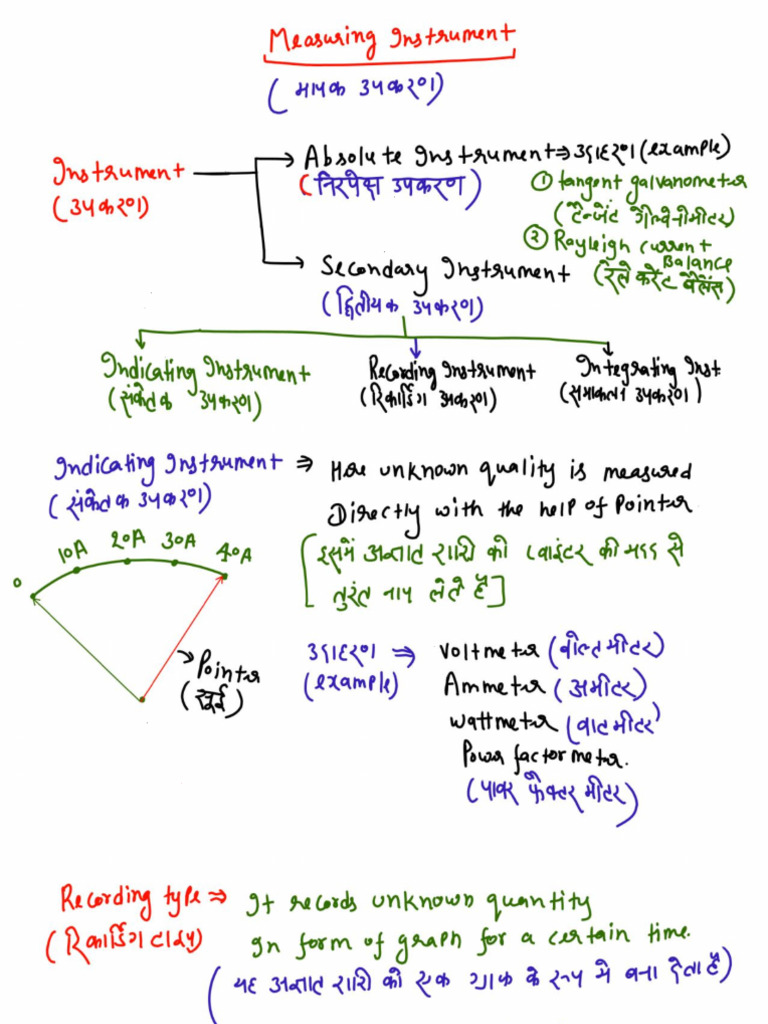 Measuring Instrument
(मापक उपकरण)
Instrument
(उपकरण)
Absolute Instrument ⇒ उदाहरण (example)
(निरपेक्ष उपकरण)
① tangent galvanometer
(टैन्जेंट गैल्वेनोमीटर)
② Rayleigh current
Balance
(रेले करेंट बैलेंस)
Secondary Instrument
(द्वितीयक उपकरण)
Indicating Instrument
(संकेतक उपकरण)
Recording Instrument
(रिकार्डिंग उपकरण)
Integrating Inst.
(समाकलन उपकरण)
Indicating Instrument ⇒ Here unknown quality is measured
(संकेतक उपकरण)
Directly with the help of Pointer
[इसमें अज्ञात राशि को प्वाइंटर की मदद से
तुरंत नाप लेते है]
0 10A 20A 30A 40A
Pointer
(सूई)
उदाहरण ⇒ voltmeter (वोल्टमीटर)
(example)
Ammeter (अमीटर)
wattmeter (वाटमीटर)
Power factor meter.
(पावर फैक्टर मीटर)
Recording type ⇒ It records unknown quantity
(रिकार्डिंग टाइप)
In form of graph for a certain time.
(यह अज्ञात राशि को एक ग्राफ के रूप में बना देता है)